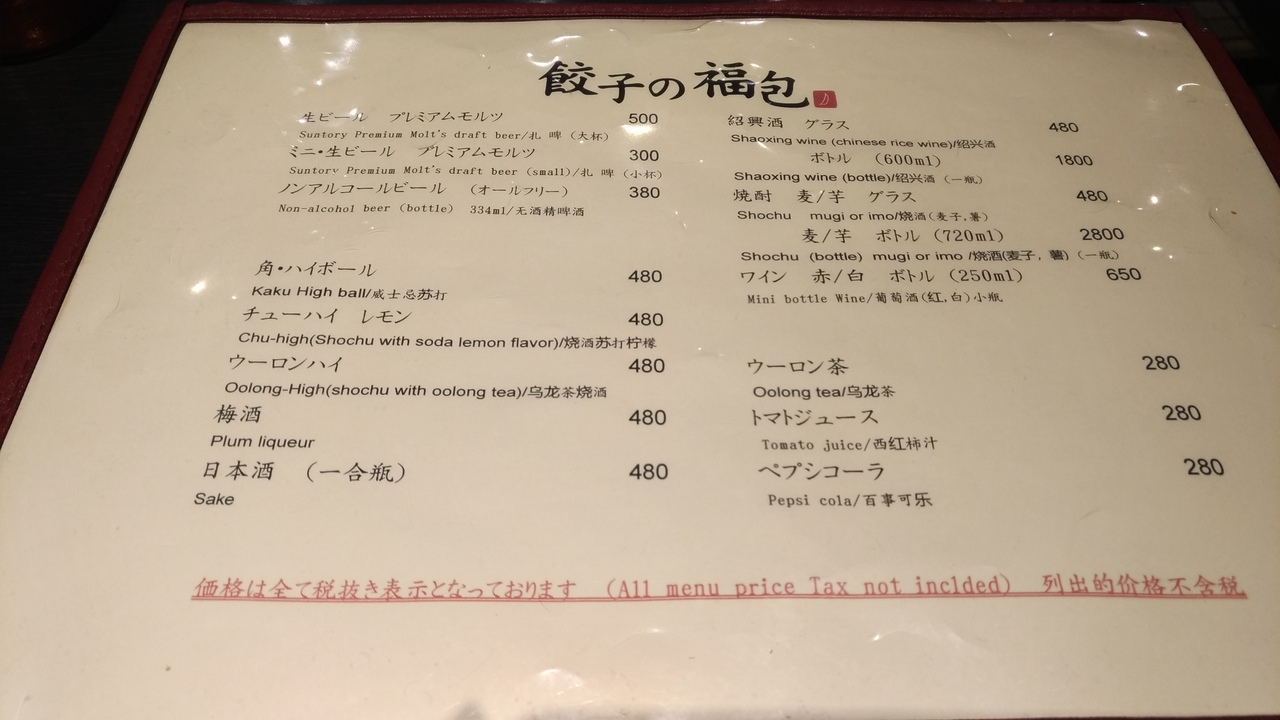 餃子の福包
生ビール プレミアムモルツ 500
Suntory Premium Molt's draft beer/札 啤 (大杯)
ミニ・生ビール プレミアムモルツ 300
Suntory Premium Molt's draft beer (small)/札 啤 (小杯)
ノンアルコールビール (オールフリー) 380
Non-alcohol beer (bottle) 334ml/无酒精啤酒
角・ハイボール 480
Kaku High ball/威士忌苏打
チューハイ レモン 480
Chu-high(Shochu with soda lemon flavor)/烧酒苏打柠檬
ウーロンハイ 480
Oolong-High(shochu with oolong tea)/乌龙茶烧酒
梅酒 480
Plum liqueur
日本酒 (一合瓶) 480
Sake
紹興酒 グラス 480
Shaoxing wine (chinese rice wine)/绍兴酒
ボトル (600ml) 1800
Shaoxing wine (bottle)/绍兴酒 (一瓶)
焼酎 麦/芋 グラス 480
Shochu mugi or imo/烧酒(麦子,薯)
麦/芋 ボトル (720ml) 2800
Shochu (bottle) mugi or imo /烧酒(麦子, 薯) (一瓶)
ワイン 赤/白 ボトル (250ml) 650
Mini bottle Wine/葡萄酒(红,白)小瓶
ウーロン茶 280
Oolong tea/乌龙茶
トマトジュース 280
Tomato juice/西红柿汁
ペプシコーラ 280
Pepsi cola/百事可乐
価格は全て税抜き表示となっております (All menu price Tax not inclded) 列出的价格不含税